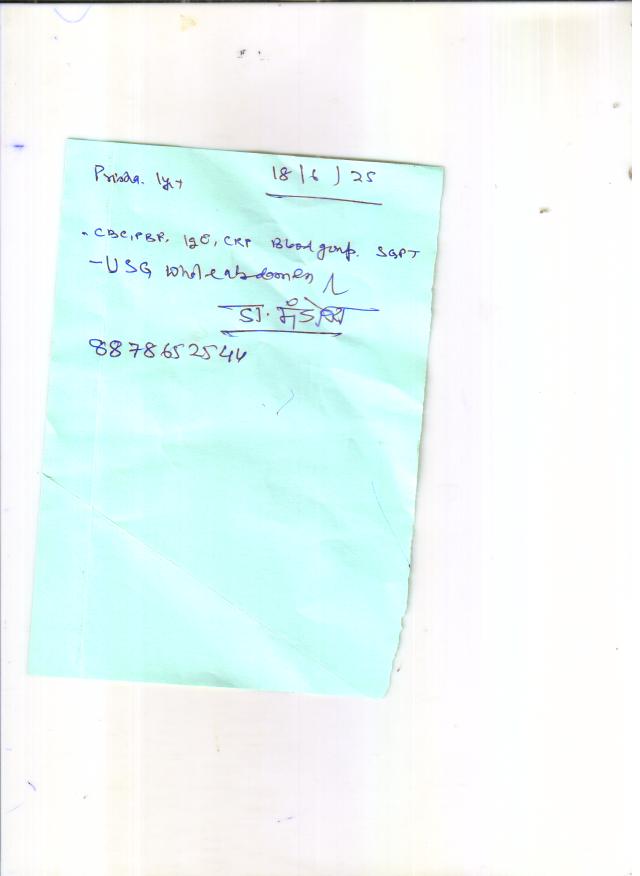 Prisha. 1yr 18/6/25
CBC, PBF, IgE, CRP Blood group. SGPT
- USG whole abdomen
डा.
8878652544